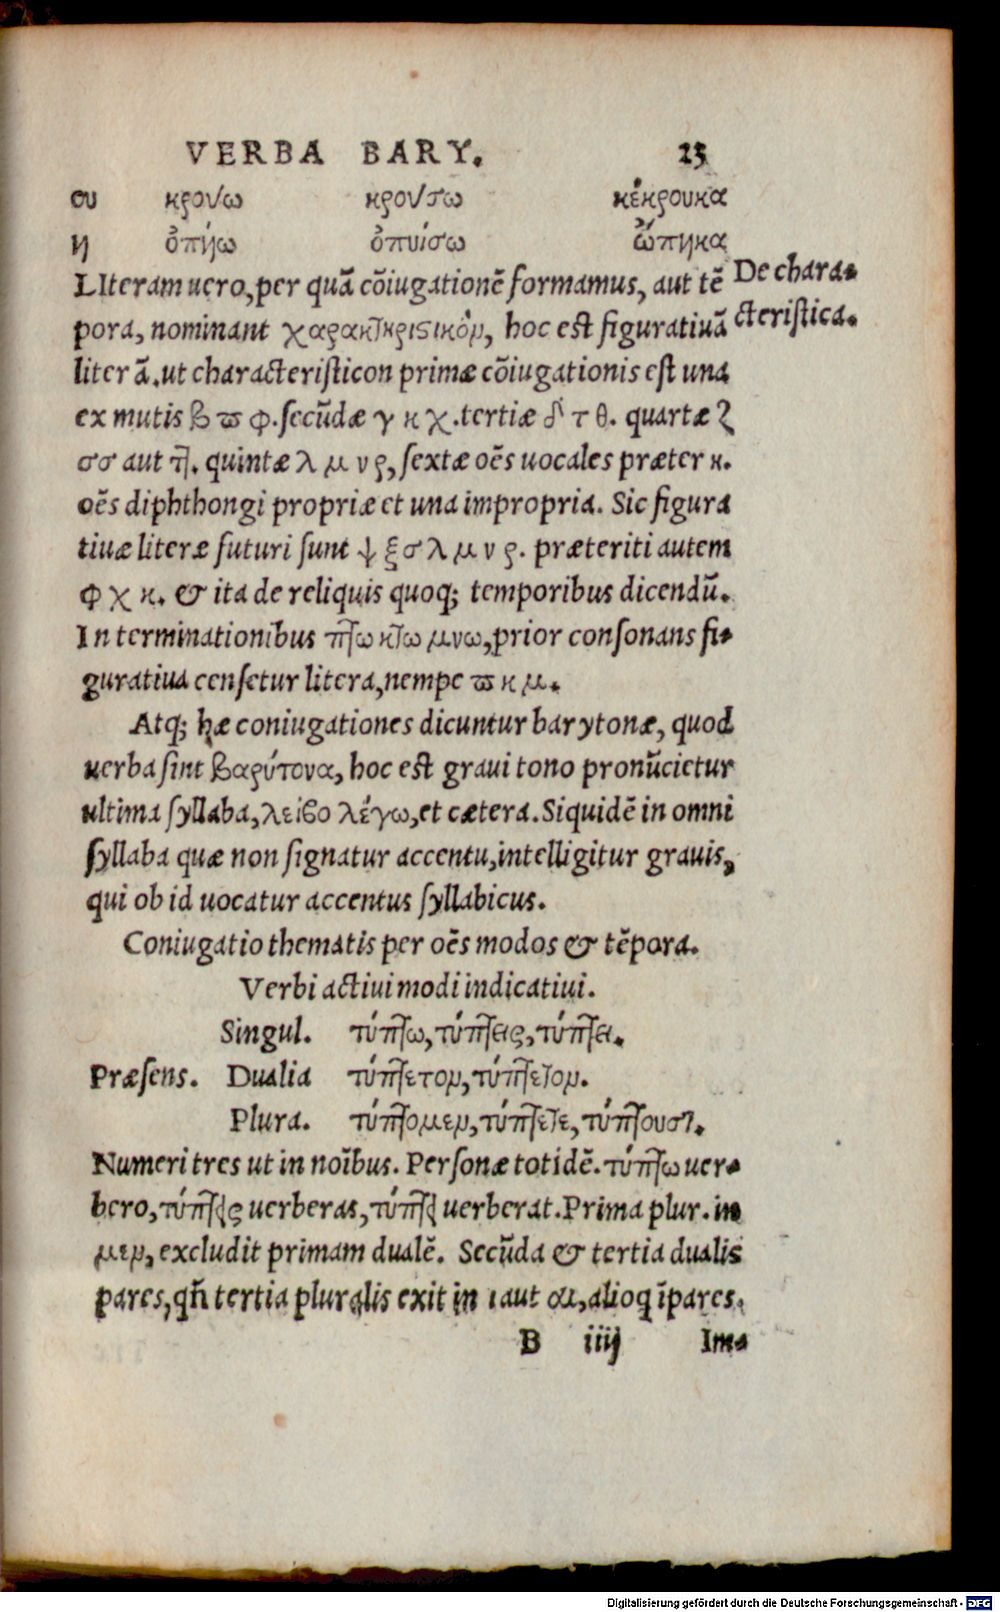 VERBA BARY. 25
ου κρούω κρούσω κέκρουκα
ηι ὀπύω ὀπυίσω ὤπυκα
LIteram uero, per quā cōiugationē formamus, aut tē De chara-
pora, nominant χαρακτηριστικὸν, hoc est figuratiuā cteristica.
literā. ut characteristicon primæ cōiugationis est una
ex mutis β π φ. secūdæ γ κ χ. tertiæ δ τ θ. quartæ ζ
σσ aut ττ. quintæ λ μ ν ρ, sextæ oēs uocales præter κ.
oēs diphthongi propriæ et una impropria. Sic figura
tiuæ literæ futuri sunt ψ ξ σ λ μ ν ρ. præteriti autem
φ χ κ. & ita de reliquis quoq; temporibus dicendū.
In terminationibus πτω κτω μνω, prior consonans fi-
guratiua censetur litera, nempe π κ μ.
Atq; hæ coniugationes dicuntur barytonæ, quod
uerba sint βαρύτονα, hoc est graui tono pronūcietur
ultima syllaba, λείβο λέγω, et cætera. Siquidē in omni
syllaba quæ non signatur accentu, intelligitur grauis,
qui ob id uocatur accentus syllabicus.
Coniugatio thematis per oēs modos & tēpora.
Verbi actiui modi indicatiui.
Singul. τύπτω, τύπτεις, τύπτει.
Præsens. Dualia τύπτετον, τύπτετον.
Plura. τύπτομεν, τύπτετε, τύπτουσι.
Numeri tres ut in noībus. Personæ totidē. τύπτω uer-
bero, τύπτεις uerberas, τύπτει uerberat. Prima plur. in
μεν, excludit primam dualē. Secūda & tertia dualis
pares, qn̄ tertia pluralis exit in ι aut αι, alioq īpares.
B iiij Ima
Digitalisierung gefördert durch die Deutsche Forschungsgemeinschaft - DFG